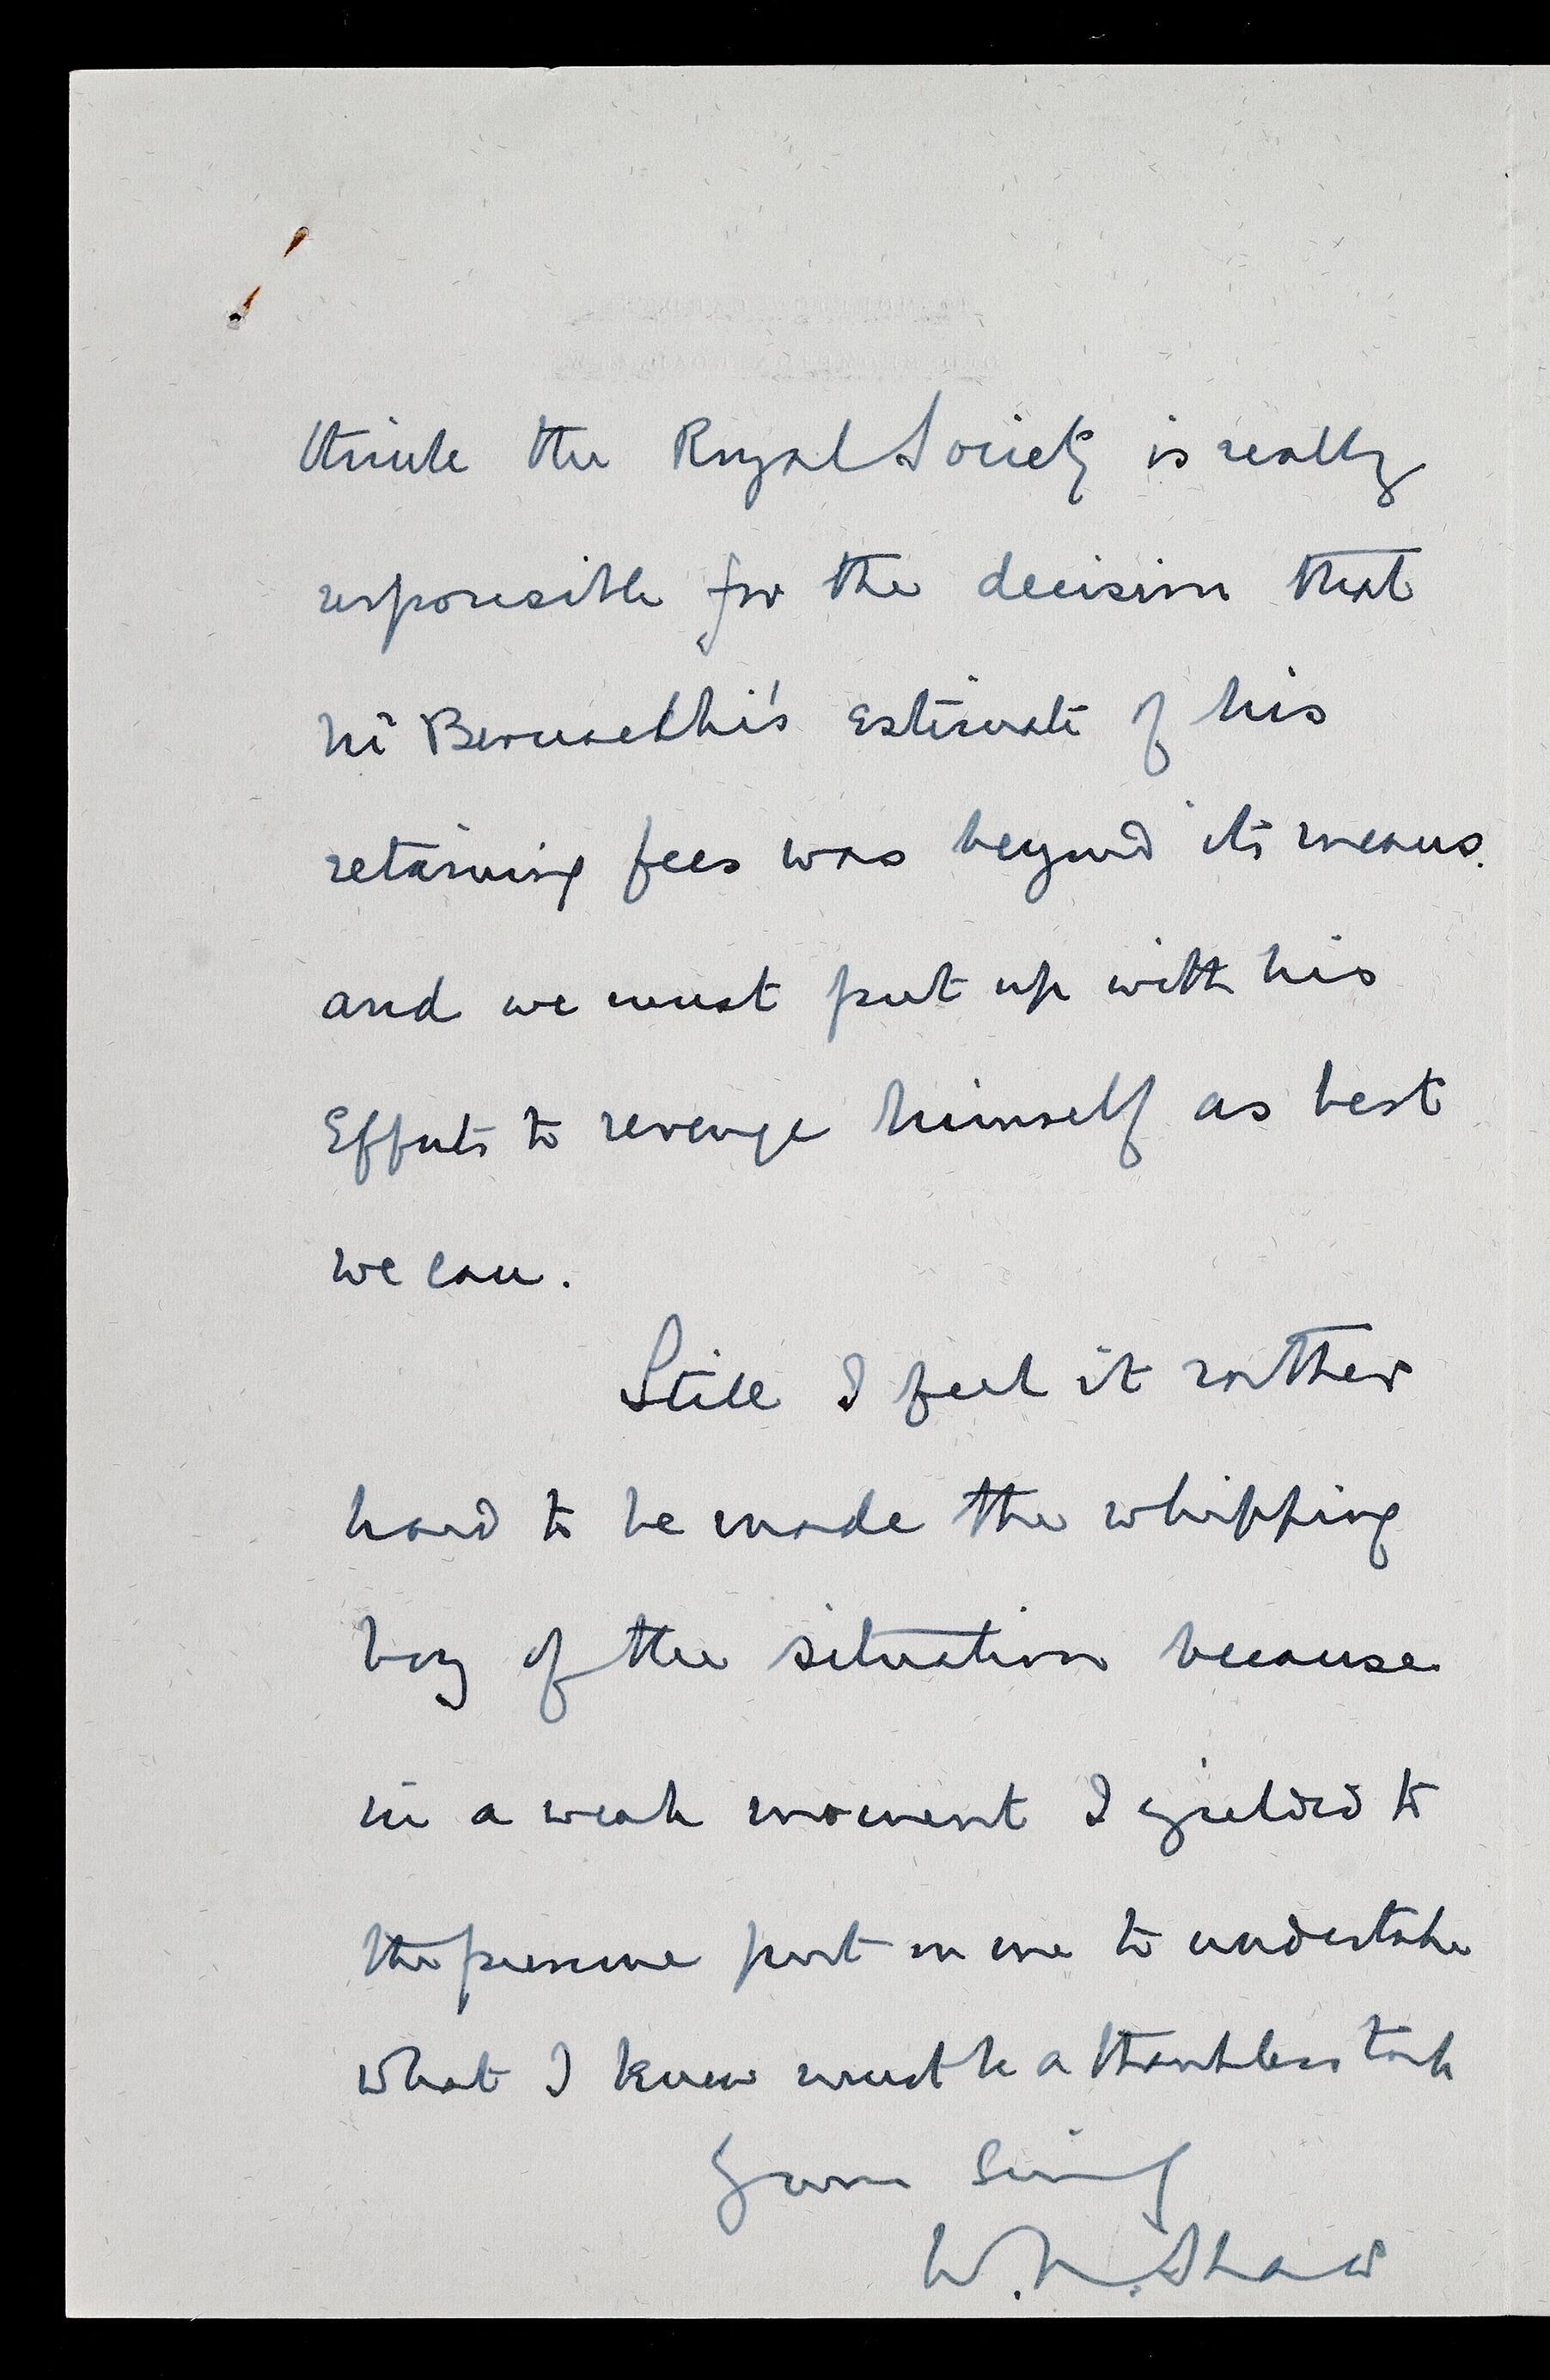 think the Royal Society is really
responsible for the decision that
Mr Bernacchi's estimate of his
retaining fees was beyond its means.
and we must put up with his
Efforts to revenge himself as best
we can.
Still I feel it rather
hard to be made the whipping
boy of the situation because
in a weak moment I yielded to
the pressure put on me to undertake
what I knew must be a thankless task
Yours Sincy
W. N. Shaw